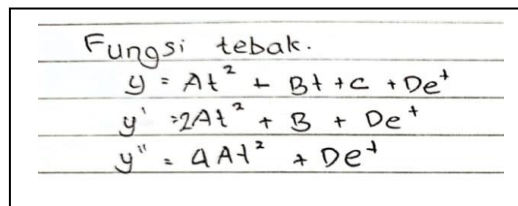 Fungsi tebak.
y = At² + Bt + c + Deᵗ
y' = 2At² + B + Deᵗ
y" = 4At² + Deᵗ